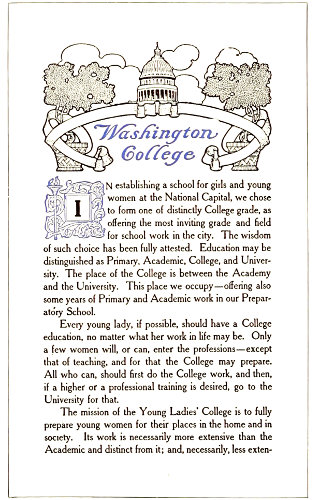 Washington
College
IN establishing a school for girls and young
women at the National Capital, we chose
to form one of distinctly College grade, as
offering the most inviting grade and field
for school work in the city. The wisdom
of such choice has been fully attested. Education may be
distinguished as Primary, Academic, College, and Univer-
sity. The place of the College is between the Academy
and the University. This place we occupy—offering also
some years of Primary and Academic work in our Prepar-
atory School.
Every young lady, if possible, should have a College
education, no matter what her work in life may be. Only
a few women will, or can, enter the professions—except
that of teaching, and for that the College may prepare.
All who can, should first do the College work, and then,
if a higher or a professional training is desired, go to the
University for that.
The mission of the Young Ladies' College is to fully
prepare young women for their places in the home and in
society. Its work is necessarily more extensive than the
Academic and distinct from it; and, necessarily, less exten-